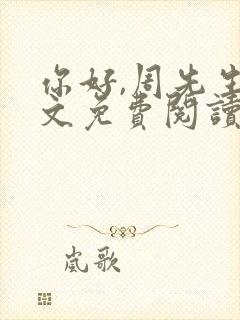 你好,周先生
文免費閱讀
嵐歌